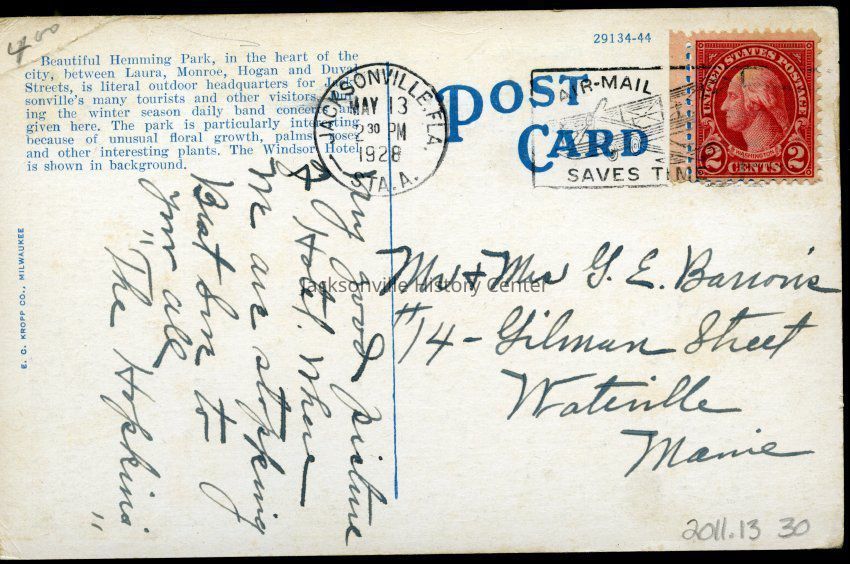 4.00
Beautiful Hemming Park, in the heart of the
city, between Laura, Monroe, Hogan and Duval
Streets, is literal outdoor headquarters for
sonville's many tourists and other visitors.
ing the winter season daily band concerts are
given here. The park is particularly interesting
because of unusual floral growth, palms, roses
and other interesting plants. The Windsor Hotel
is shown in background.
E. C. KROPP CO., MILWAUKEE
JACKSONVILLE, FLA.
MAY 13
2 30 PM
1928
STA. A.
29134-44
POST
CARD
AIR-MAIL
SAVES TIME
UNITED STATES POSTAGE
WASHINGTON
2 2
CENTS
good picture
of Hotel. Where
We are stopping
Best Luv to
you all
"The Hopkins"
Mr & Mrs G. E. Barrows
#14 - Gilman Street
Waterville
Maine
Jacksonville History Center
2011.13 30